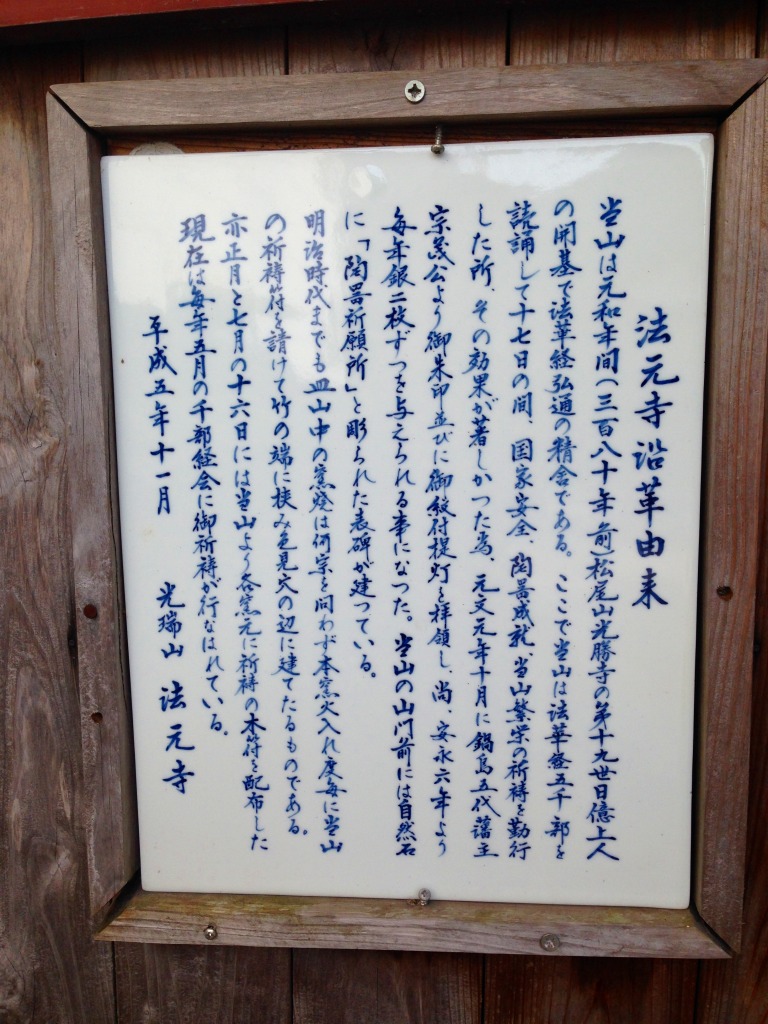 法元寺沿革由来
当山は元和年間(三百八十年前)松尾山光勝寺の第十九世日億上人
の開基で法華経弘通の精舎である。ここで当山は法華経五千部を
読誦して十七日の間、国家安全、陶器成就、当山繁栄の祈祷を勤行
した所、その効果が著しかった為、元文元年十月に鍋島五代藩主
宗茂公より御朱印並びに御紋付提灯を拝領し、尚、安永六年より
毎年銀二枚ずつを与えられる事になった。当山の山門前には自然石
に「陶器祈願所」と彫られた表碑が建っている。
明治時代までも皿山中の窯焼は何宗を問わず本窯火入れ度毎に当山
の祈祷符を請けて竹の端に挟み色見穴の辺に建てたるものである。
亦正月と七月の十六日には当山より各窯元に祈祷の木符を配布した
現在は毎年五月の千部経会に御祈祷が行なはれている。
平成五年十一月 光瑞山 法元寺